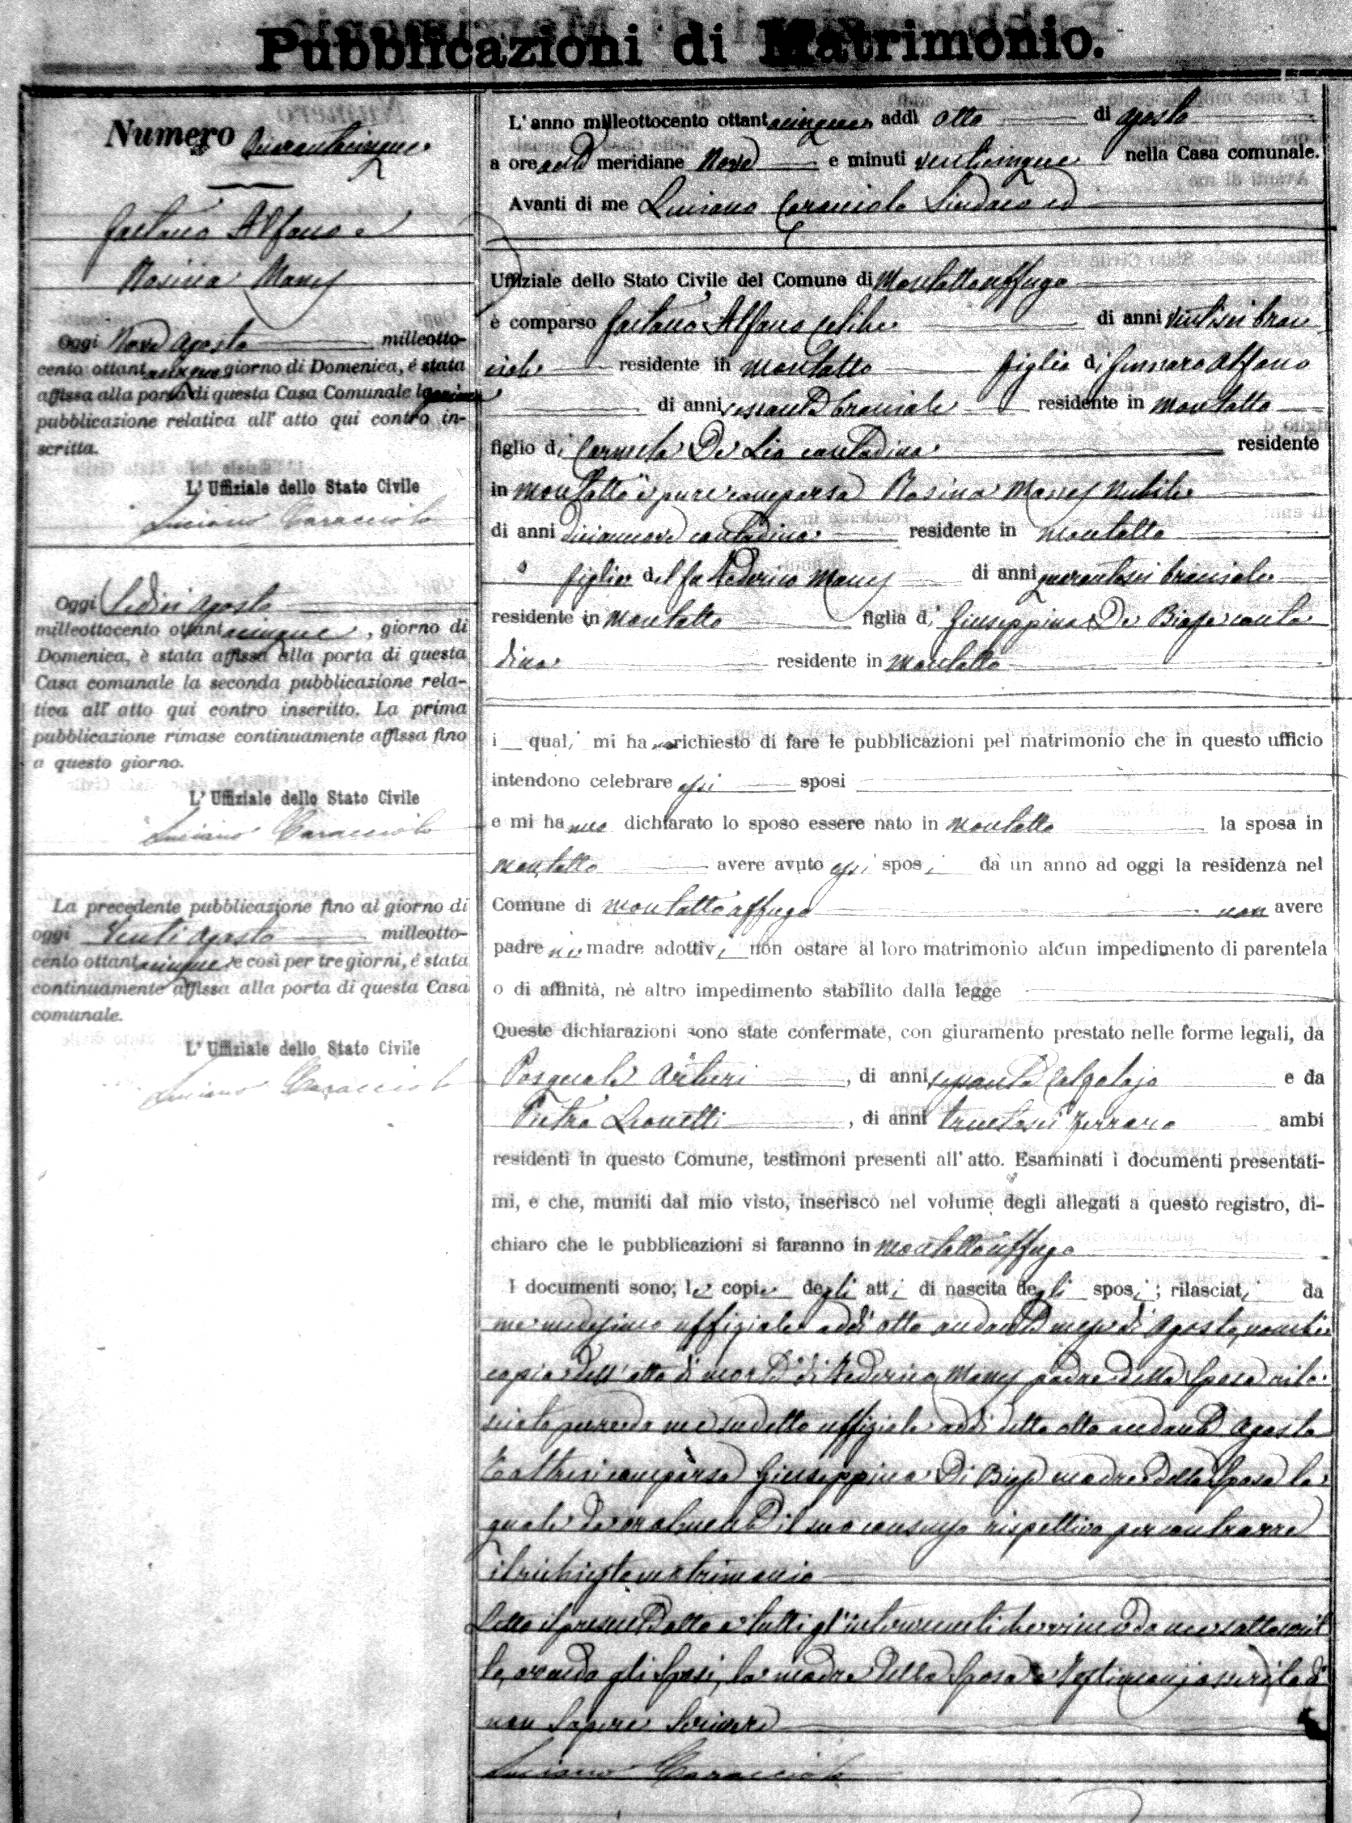 Pubblicazioni di Matrimonio.
Numero Quarantacinque
Gaetano Alfano e
Rosina Mancy
Oggi Nove Agosto milleotto-
cento ottantacinque giorno di Domenica, é stata
affissa alla porta di questa Casa Comunale la prima
pubblicazione relativa all' atto qui contro in-
scritta.
L' Uffiziale dello Stato Civile
Luciano Caracciolo
Oggi Sedici Agosto
milleottocento ottantacinque, giorno di
Domenica, è stata affissa alla porta di questa
Casa comunale la seconda pubblicazione rela-
tiva all' atto qui contro inscritto. La prima
pubblicazione rimase continuamente affissa fino
a questo giorno.
L' Uffiziale dello Stato Civile
Luciano Caracciolo
La precedente pubblicazione fino al giorno di
oggi Venti Agosto milleotto-
cento ottantacinque e così per tre giorni, é stata
continuamente affissa alla porta di questa Casa
comunale.
L' Uffiziale dello Stato Civile
Luciano Caracciolo
L' anno milleottocento ottantacinque addì otto di Agosto
a ore anti meridiane Nove e minuti venticinque nella Casa comunale.
Avanti di me Luciano Caracciolo Sindaco ed
Uffiziale dello Stato Civile del Comune di Montalto Uffugo
è comparso Gaetano Alfano celibe di anni ventisei brac
ciale residente in Montalto figlio di Gennaro Alfano
di anni sessanta bracciale residente in Montalto
figlio di Carmela De Lio contadina residente
in Montalto è pure comparsa Rosina Mancy Nubile
di anni diciannove contadina residente in Montalto
figlia del fu Federico Mancy di anni quarantasei bracciale
residente in Montalto figlia di Giuseppina De Biase conta
dina residente in Montalto
i quali mi hanno richiesto di fare le pubblicazioni pel matrimonio che in questo ufficio
intendono celebrare essi sposi
e mi hanno dichiarato lo sposo essere nato in Montalto la sposa in
Montalto avere avuto essi sposi da un anno ad oggi la residenza nel
Comune di Montalto Uffugo non avere
padre nè madre adottivi non ostare al loro matrimonio alcun impedimento di parentela
o di affinità, nè altro impedimento stabilito dalla legge
Queste dichiarazioni sono state confermate, con giuramento prestato nelle forme legali, da
Pasquale Artieri, di anni Calzolajo e da
Pietro Leonetti, di anni trentasei Ferraro ambi
residenti in questo Comune, testimoni presenti all' atto. Esaminati i documenti presentati-
mi, e che, muniti dal mio visto, inserisco nel volume degli allegati a questo registro, di-
chiaro che le pubblicazioni si faranno in Montalto Uffugo
I documenti sono; le copie degli atti di nascita degli sposi; rilasciati da
me medesimo uffiziale addì otto andante mese di Agosto, nonchè
copia dell' atto di morte di Federico Mancy padre della Sposa rila
sciata pure da me sudetto uffiziale addì detto otto andante Agosto
E altresì comparsa Giuseppina Di Biase madre della Sposa la
quale dà oralmente il suo consenso rispettivo per contrarre
il richiesto matrimonio
Letto il presente atto a tutti gl' intervenuti che viene da me sottoscrit
to, avendo gli Sposi, la madre della Sposa e Testimonj asserito di
non Sapere Scrivere
Luciano Caracciolo